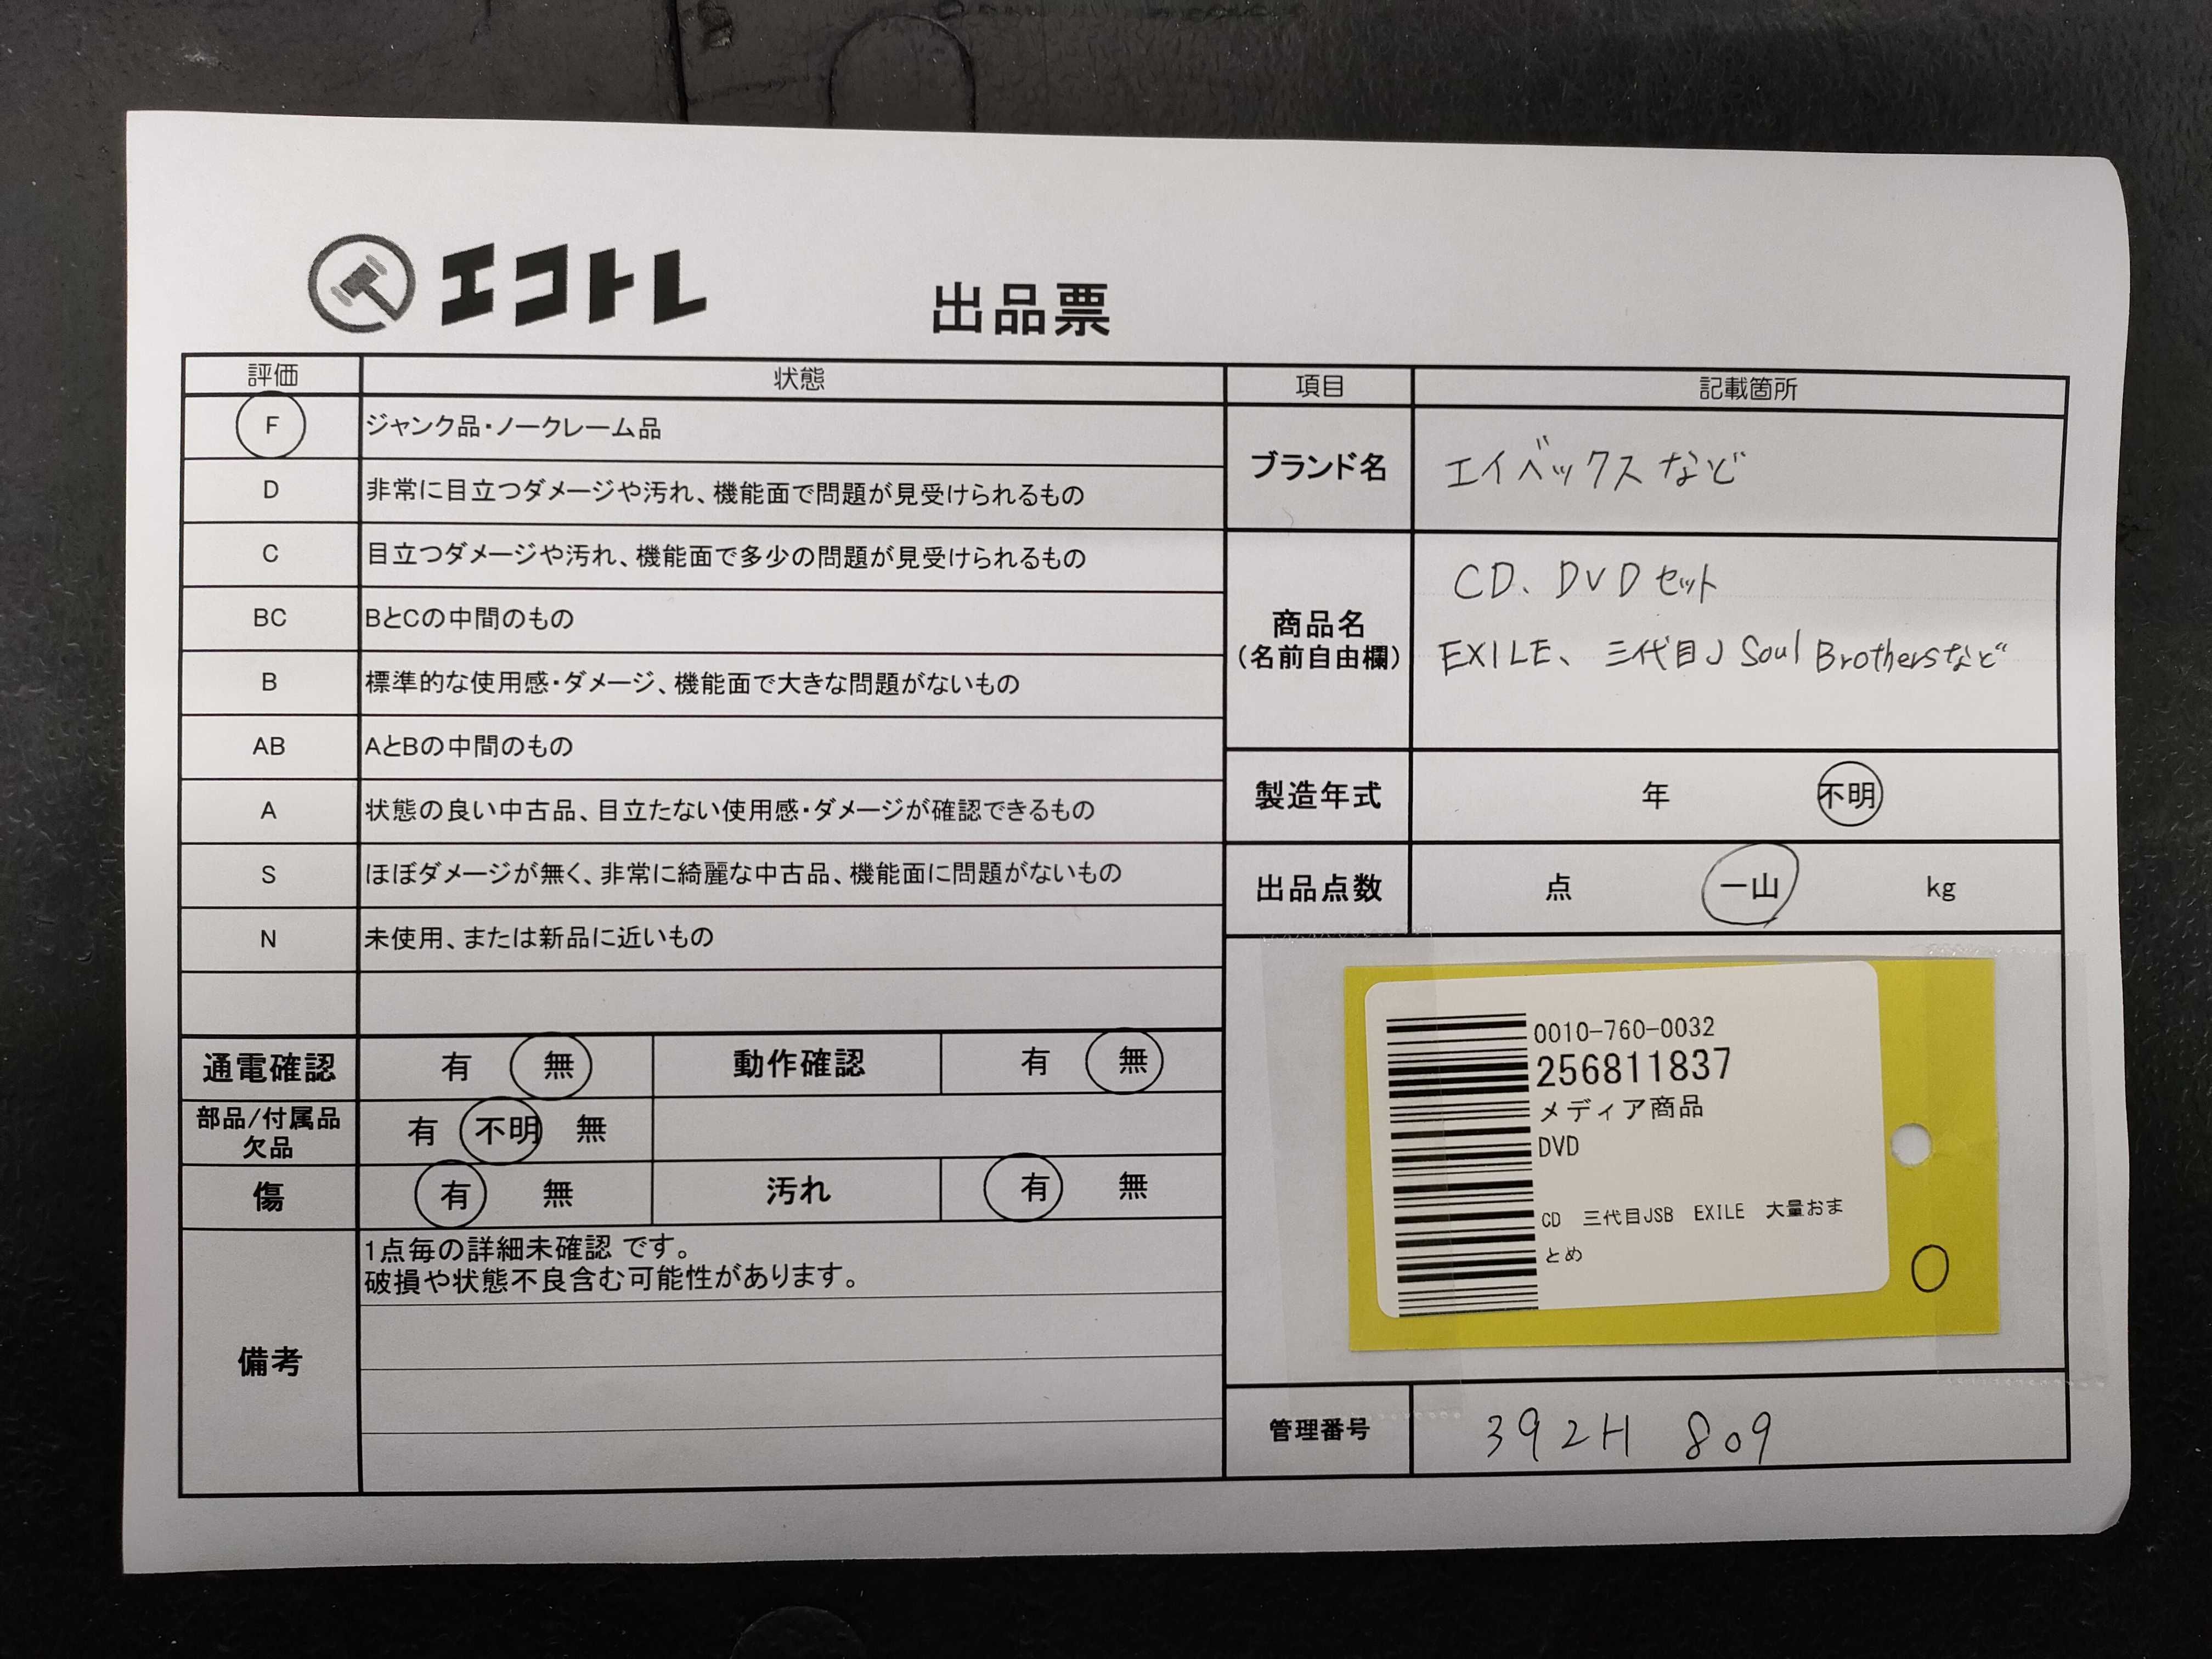 エコトレ
出品票
評価 状態 項目 記載箇所
F ジャンク品・ノークレーム品
D 非常に目立つダメージや汚れ、機能面で問題が見受けられるもの
C 目立つダメージや汚れ、機能面で多少の問題が見受けられるもの
BC BとCの中間のもの
B 標準的な使用感・ダメージ、機能面で大きな問題がないもの
AB AとBの中間のもの
A 状態の良い中古品、目立たない使用感・ダメージが確認できるもの
S ほぼダメージが無く、非常に綺麗な中古品、機能面に問題がないもの
N 未使用、または新品に近いもの
通電確認 有 無 動作確認 有 無
部品/付属品
欠品 有 不明 無
傷 有 無 汚れ 有 無
備考
1点毎の詳細未確認 です。
破損や状態不良含む可能性があります。
ブランド名 エイベックスなど
商品名
(名前自由欄)
CD、DVDセット
EXILE、三代目J Soul Brothersなど
製造年式 年 不明
出品点数 点 一山 kg
0010-760-0032
256811837
メディア商品
DVD
CD 三代目JSB EXILE 大量おま
とめ
管理番号 392H 809